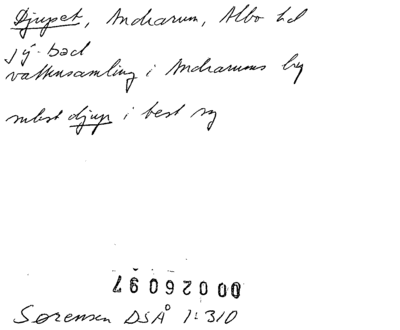 Djupet, Andrarum, Albo hd
jý. bad
vattensamling i Andrarums by
subst djup i best sg
000026097
Sørensen DSÅ 1:310